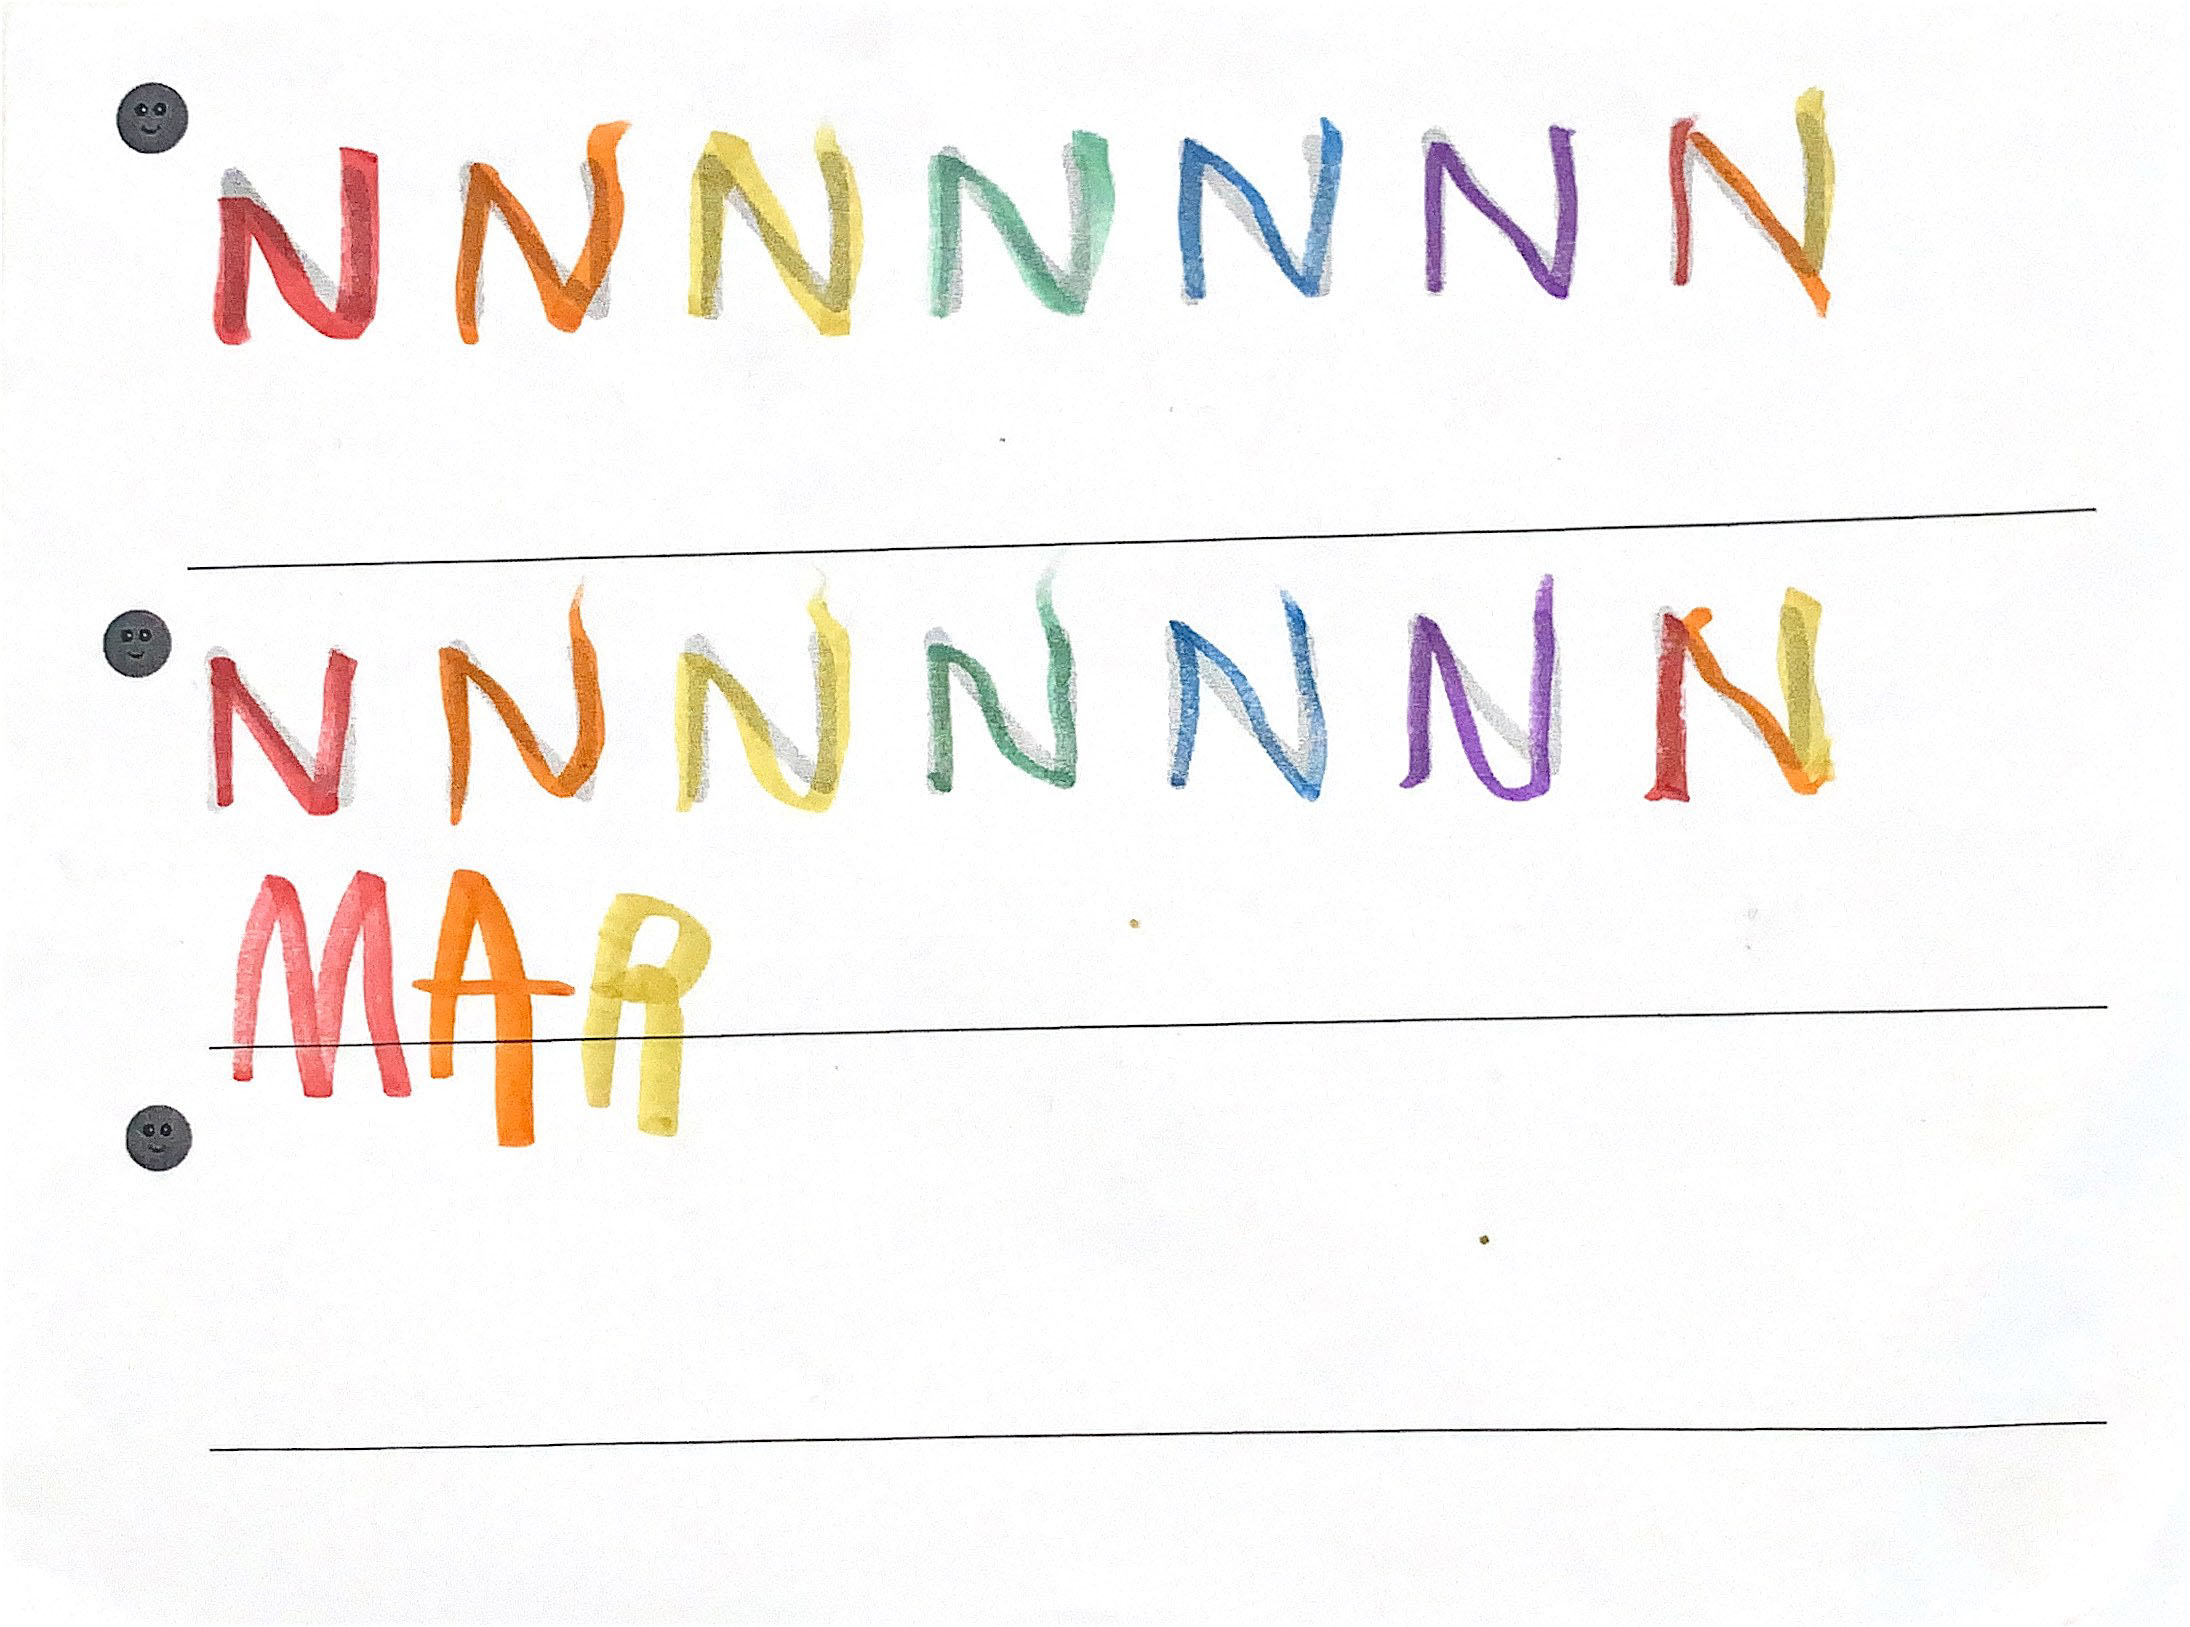 N N N N N N N
N N N N N N N
MAR